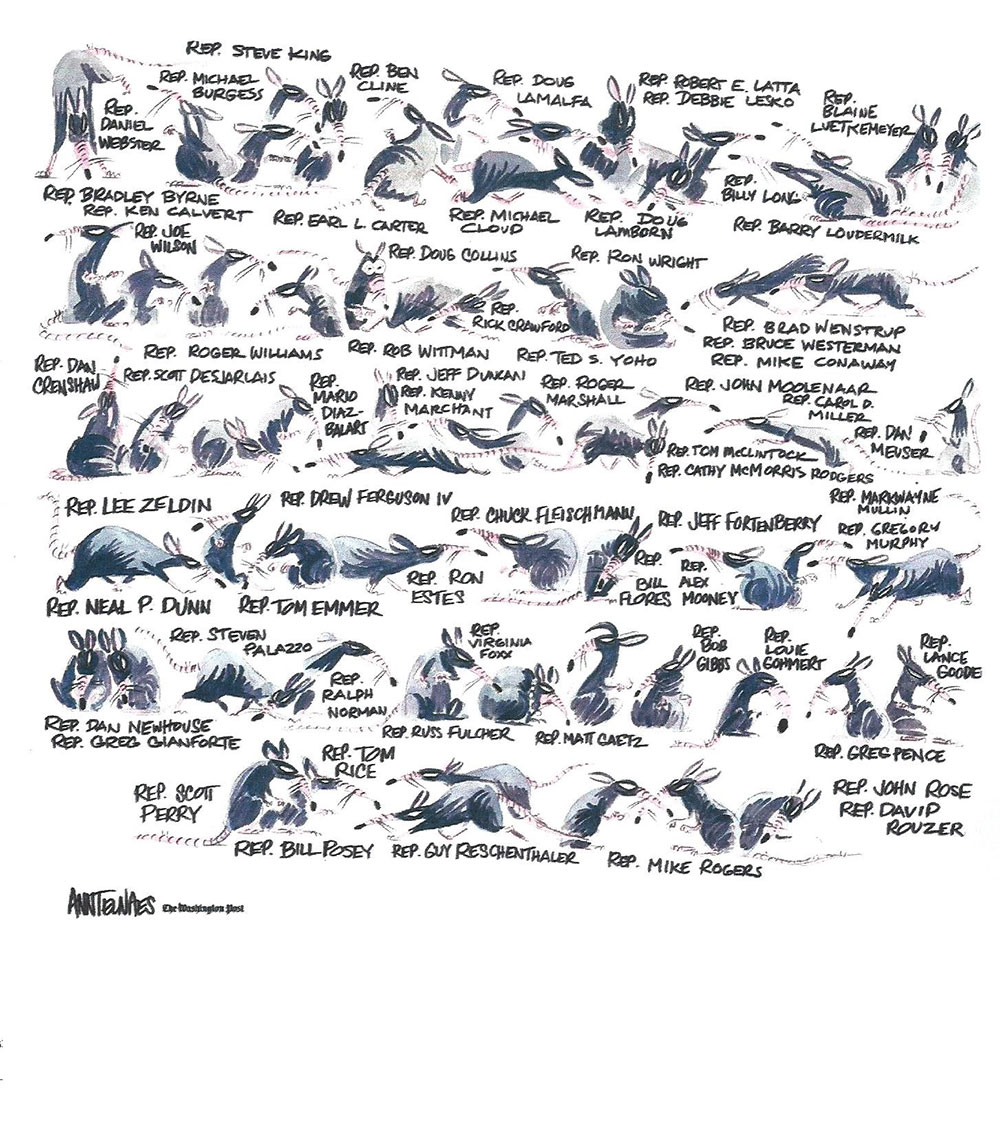 REP. STEVE KING
REP. MICHAEL
BURGESS
REP. BEN
CLINE
REP. DOUG
LAMALFA
REP. ROBERT E. LATTA
REP. DEBBIE LESKO
REP.
BLAINE
LUETKEMEYER
REP.
DANIEL
WEBSTER
REP. BRADLEY BYRNE
REP. KEN CALVERT
REP. EARL L. CARTER
REP. MICHAEL
CLOUD
REP. DOUG
LAMBORN
REP.
BILLY LONG
REP. BARRY LOUDERMILK
REP. JOE
WILSON
REP. DOUG COLLINS
REP. RON WRIGHT
REP.
RICK CRAWFORD
REP. ROGER WILLIAMS
REP. ROB WITTMAN
REP. TED S. YOHO
REP. BRAD WENSTRUP
REP. BRUCE WESTERMAN
REP. MIKE CONAWAY
REP. DAN
CRENSHAW
REP. SCOTT DESJARLAIS
REP.
MARIO
DIAZ-
BALART
REP. JEFF DUNCAN
REP. KENNY
MARCHANT
REP. ROGER
MARSHALL
REP. JOHN MOOLENAAR
REP. CAROL D.
MILLER
REP. DAN
MEUSER
REP. TOM McCLINTOCK
REP. CATHY McMORRIS RODGERS
REP. LEE ZELDIN
REP. DREW FERGUSON IV
REP. CHUCK FLEISCHMANN
REP. JEFF FORTENBERRY
REP. MARKWAYNE
MULLIN
REP. GREGORY
MURPHY
REP. NEAL P. DUNN
REP. TOM EMMER
REP. RON
ESTES
REP.
BILL
FLORES
REP.
ALEX
MOONEY
REP. STEVEN
PALAZZO
REP.
RALPH
NORMAN
REP.
VIRGINIA
FOXX
REP.
BOB
GIBBS
REP.
LOUIE
GOHMERT
REP.
LANCE
GOODE
REP. DAN NEWHOUSE
REP. GREG GIANFORTE
REP. RUSS FULCHER
REP. MATT GAETZ
REP. GREG PENCE
REP. SCOTT
PERRY
REP. TOM
RICE
REP. JOHN ROSE
REP. DAVID
ROUZER
REP. BILL POSEY
REP. GUY RESCHENTHALER
REP. MIKE ROGERS
ANN TELNAES
The Washington Post